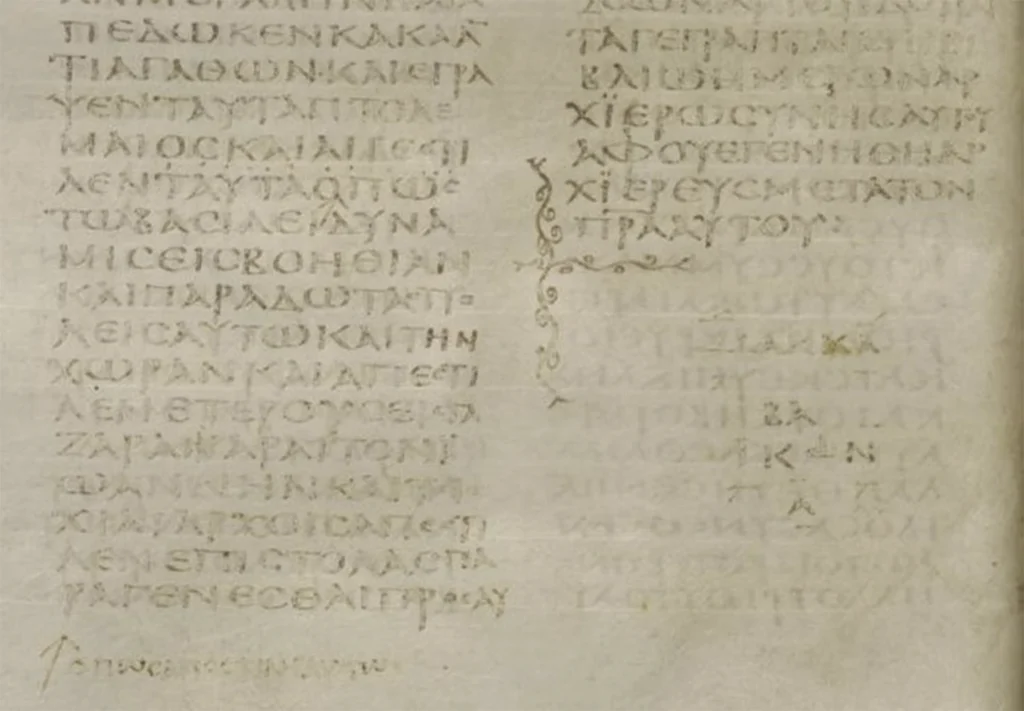 ΠΕΔΩΚΕΝΚΑΚΑΑ
ΤΙΑΓΑΘΩΝ·ΚΑΙΕΓΡΑ
ΨΕΝΤΑΥΤΑΠΤΟΛΕ
ΜΑΙΟΣΚΑΙΑΠΕΣΤΙ
ΛΕΝΤΑΥΤΑΟΠΩΣ
ΤΩΒΑΣΙΛΕΙΔΥΝΑ
ΜΙΣΕΙΣΒΟΗΘΙΑΝ
ΚΑΙΠΑΡΑΔΩΤΑΣΠΟ
ΛΕΙΣΑΥΤΩΚΑΙΤΗΝ
ΧΩΡΑΝΚΑΙΑΠΕΣΤΙ
ΛΕΝΕΤΕΡΟΥΣΕΙΣΓΑ
ΖΑΡΑΝΑΡΑΙΤΟΝΙ
ΩΑΝΝΗΝΚΑΙ
ΧΙΛΙΑΡΧΟΙΣΑΠΕΣΤΙ
ΛΕΝΕΠΙΣΤΟΛΑΣΠΑ
ΡΑΓΕΝΕΣΘΑΙΠΡΟΣΑΥ
οπωσαποστιληαυτω
ΤΑΓΕΓΡΑΠΤΑΙΕΠΙΒΙ
ΒΛΙΩΗΜΕΡΩΝΑΡ
ΧΪΕΡΩΣΥΝΗΣΑΥΤΟΥ
ΑΦΟΥΕΓΕΝΗΘΗΑΡ
ΧΪΕΡΕΥΣΜΕΤΑΤΟΝ
ΠΡΑΑΥΤΟΥ:
ΜΑΚΚΑ
ΒΑ
ΚΩΝ
Α